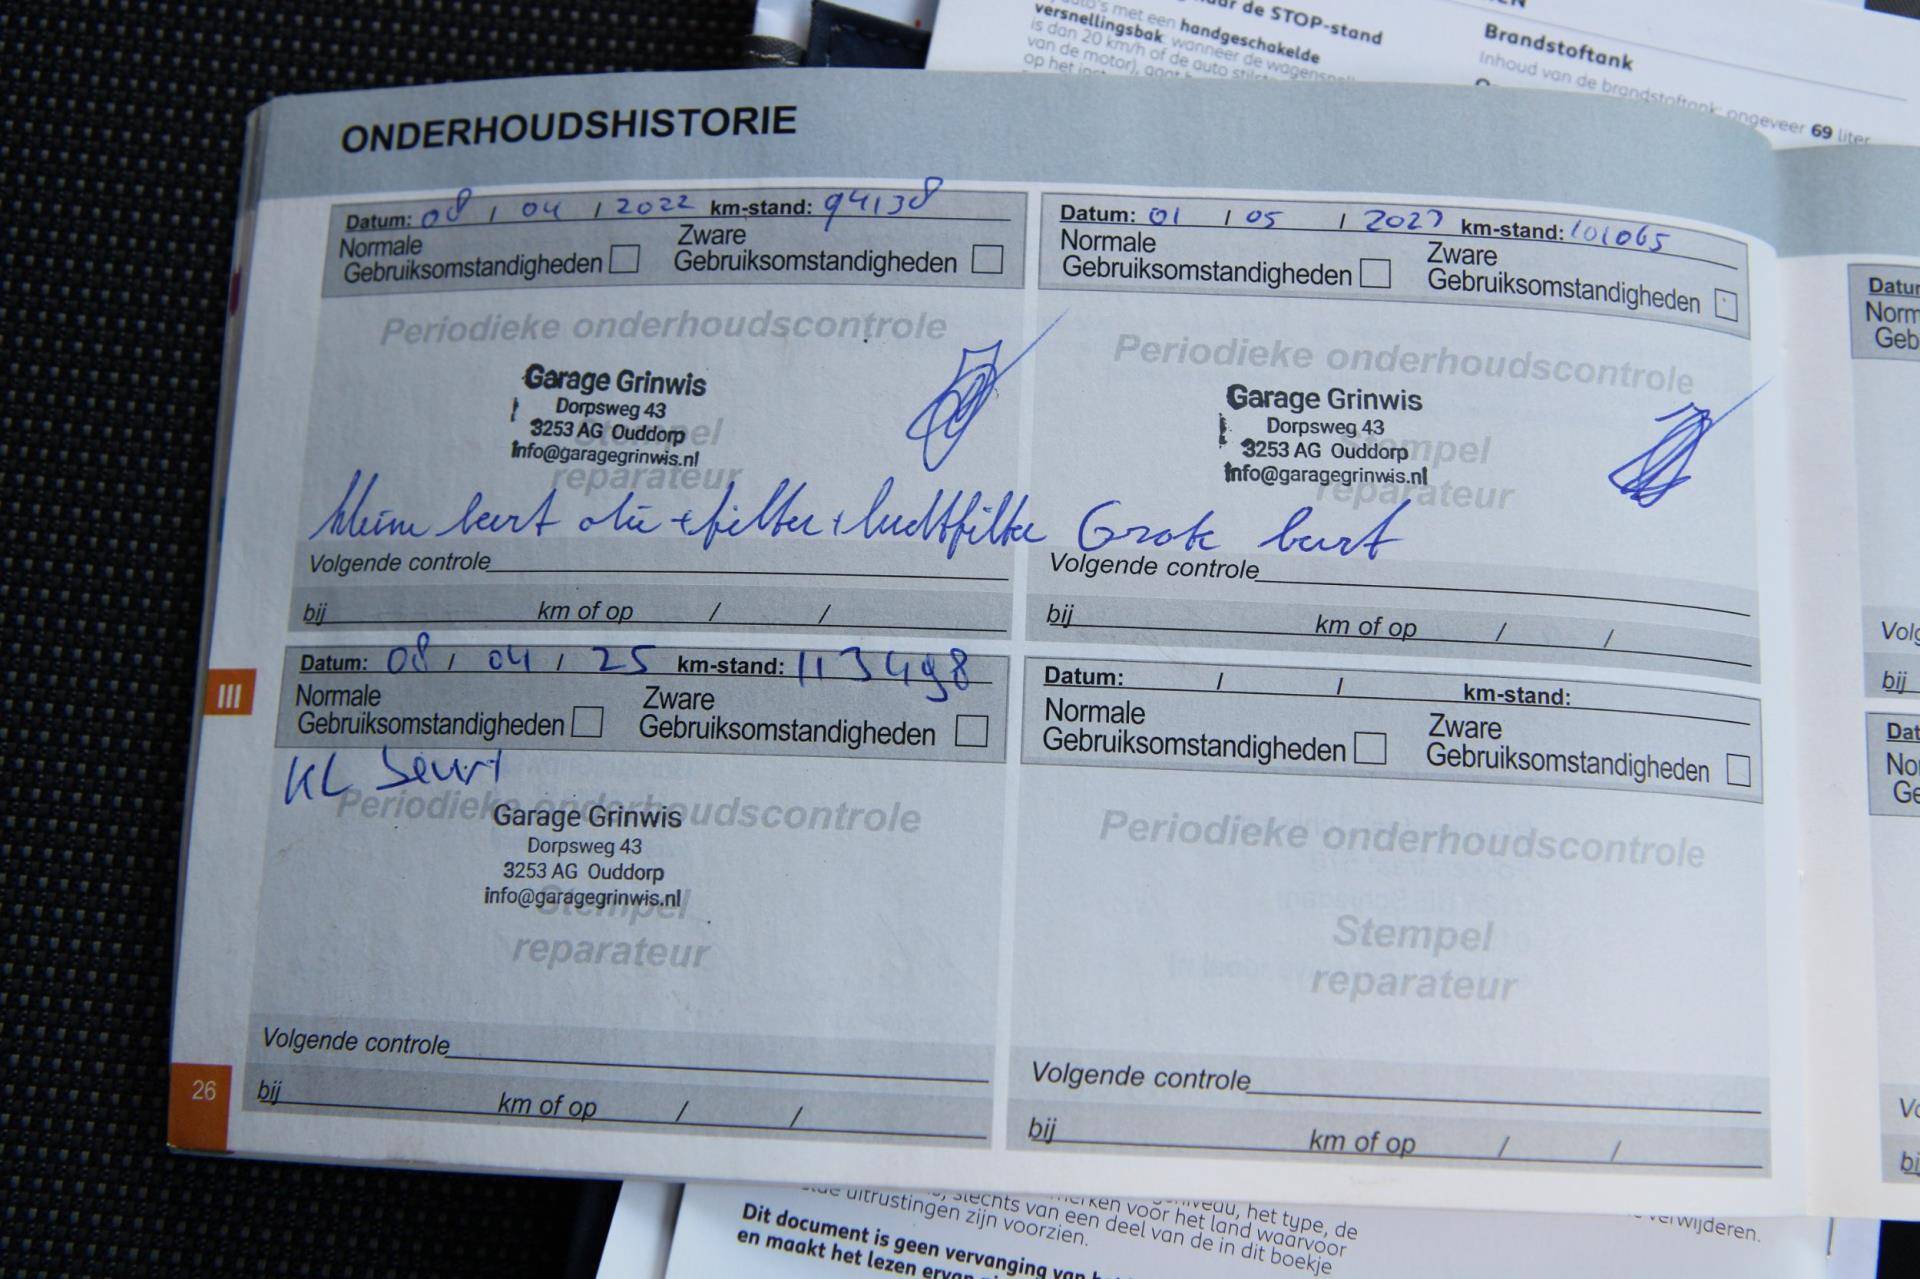 de STOP-stand
auto's met een handgeschakelde
versnellingsbak: wanneer de
is dan 20 km/h of de auto
van de motor), gaat
op het
Brandstoftank
Inhoud van de brandstoftank: ongeveer 69 liter
ONDERHOUDSHISTORIE
Datum: 08 / 04 / 2022 km-stand: 94138
Normale
Gebruiksomstandigheden
Zware
Gebruiksomstandigheden
Periodieke onderhoudscontrole
Stempel
reparateur
Garage Grinwis
Dorpsweg 43
3253 AG Ouddorp
info@garagegrinwis.nl
kleine beurt olie + filter + luchtfilter
Volgende controle
bij km of op / /
Datum: 01 / 05 / 2023 km-stand: 101065
Normale
Gebruiksomstandigheden
Zware
Gebruiksomstandigheden
Periodieke onderhoudscontrole
Stempel
reparateur
Garage Grinwis
Dorpsweg 43
3253 AG Ouddorp
info@garagegrinwis.nl
Grote beurt
Volgende controle
bij km of op / /
III
Datum: 08 / 04 / 25 km-stand: 113498
Normale
Gebruiksomstandigheden
Zware
Gebruiksomstandigheden
KL beurt
Periodieke onderhoudscontrole
Stempel
reparateur
Garage Grinwis
Dorpsweg 43
3253 AG Ouddorp
info@garagegrinwis.nl
Volgende controle
bij km of op / /
Datum: / / km-stand:
Normale
Gebruiksomstandigheden
Zware
Gebruiksomstandigheden
Periodieke onderhoudscontrole
Stempel
reparateur
Volgende controle
bij km of op / /
26
het type, de
slechts van een deel van de in dit boekje
merken voor het land waarvoor
uitrustingen zijn voorzien.
verwijderen.
Dit document is geen vervanging van
en maakt het lezen